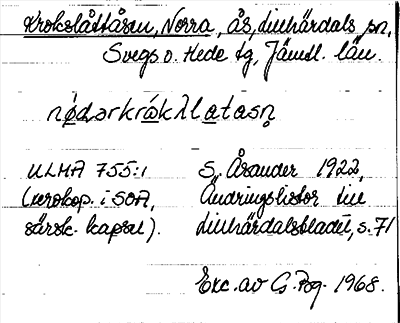 Krokslåttåsen, Norra, ås, Linhärdals sn,
Svegs o. Hede tg, Jämtl. län.
nǿdərkråkλlatasn̥
ULMA 755:1 S. Åsander 1922,
(xerokop. i SOA, Ändringslistor till
särsk. kapsel). Linhärdalsbladet, s. 71
Exc. av G. Pog. 1968.